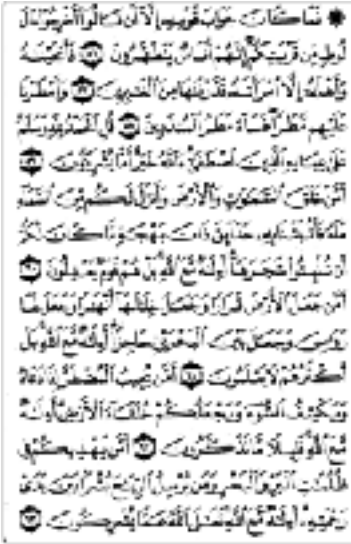 ۞ فَمَا كَانَ جَوَابَ قَوْمِهِ إِلَّا أَن قَالُوا أَخْرِجُوا آلَ
لُوطٍ مِّن قَرْيَتِكُمْ إِنَّهُمْ أُنَاسٌ يَتَطَهَّرُونَ ٥٦ فَأَنجَيْنَاهُ
وَأَهْلَهُ إِلَّا امْرَأَتَهُ قَدَّرْنَاهَا مِنَ الْغَابِرِينَ ٥٧ وَأَمْطَرْنَا
عَلَيْهِم مَّطَرًا فَسَاءَ مَطَرُ الْمُنذَرِينَ ٥٨ قُلِ الْحَمْدُ لِلَّهِ وَسَلَامٌ
عَلَىٰ عِبَادِهِ الَّذِينَ اصْطَفَىٰ آللَّهُ خَيْرٌ أَمَّا يُشْرِكُونَ ٥٩
أَمَّنْ خَلَقَ السَّمَاوَاتِ وَالْأَرْضَ وَأَنزَلَ لَكُم مِّنَ السَّمَاءِ
مَاءً فَأَنبَتْنَا بِهِ حَدَائِقَ ذَاتَ بَهْجَةٍ مَّا كَانَ لَكُمْ
أَن تُنبِتُوا شَجَرَهَا أَإِلَٰهٌ مَّعَ اللَّهِ بَلْ هُمْ قَوْمٌ يَعْدِلُونَ ٦٠
أَمَّن جَعَلَ الْأَرْضَ قَرَارًا وَجَعَلَ خِلَالَهَا أَنْهَارًا وَجَعَلَ لَهَا
رَوَاسِيَ وَجَعَلَ بَيْنَ الْبَحْرَيْنِ حَاجِزًا أَإِلَٰهٌ مَّعَ اللَّهِ بَلْ
أَكْثَرُهُمْ لَا يَعْلَمُونَ ٦١ أَمَّن يُجِيبُ الْمُضْطَرَّ إِذَا دَعَاهُ
وَيَكْشِفُ السُّوءَ وَيَجْعَلُكُمْ خُلَفَاءَ الْأَرْضِ أَإِلَٰهٌ
مَّعَ اللَّهِ قَلِيلًا مَّا تَذَكَّرُونَ ٦٢ أَمَّن يَهْدِيكُمْ فِي
ظُلُمَاتِ الْبَرِّ وَالْبَحْرِ وَمَن يُرْسِلُ الرِّيَاحَ بُشْرًا بَيْنَ يَدَيْ
رَحْمَتِهِ أَإِلَٰهٌ مَّعَ اللَّهِ تَعَالَى اللَّهُ عَمَّا يُشْرِكُونَ ٦٣